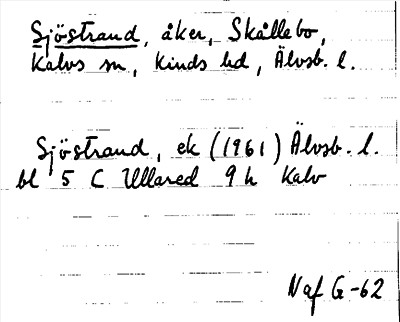 Sjöstrand, åker, Skållebo,
Kalvs sn, Kinds hd, Älvsb. l.
Sjöstrand, ek (1961) Älvsb. l.
bl 5 C Ullared 9 h Kalv
Naf G-62